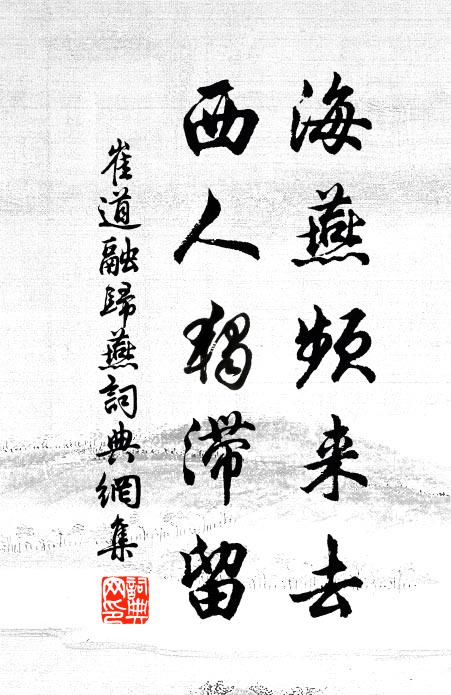 海燕頻来去
西人獨滯留
崔道融歸燕詞典網集
詞典網印